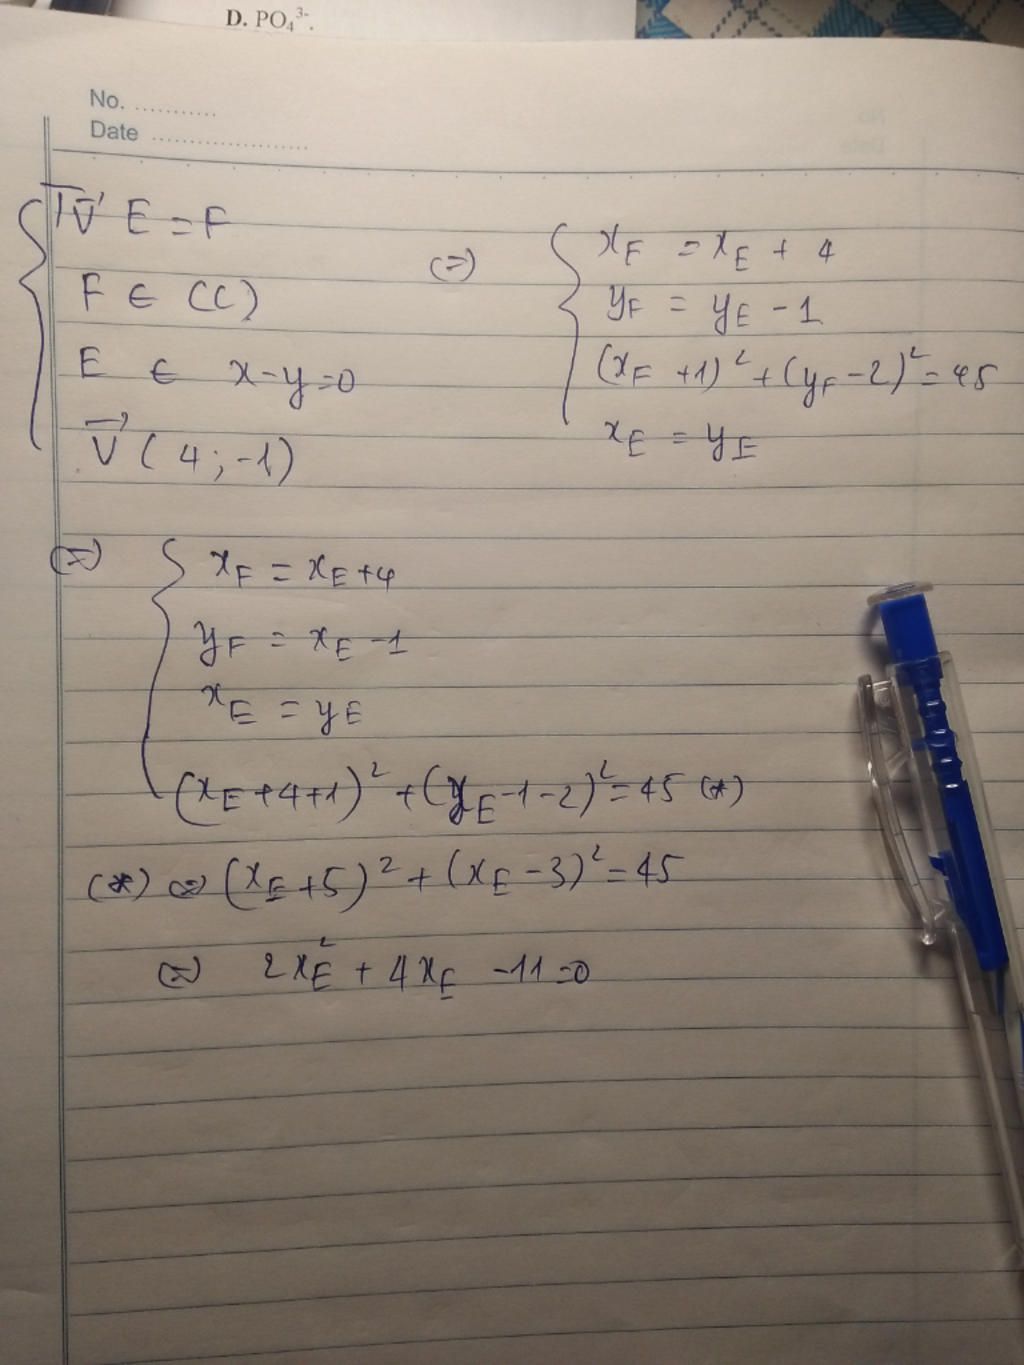 D. PO₄³⁻.
No. ...........
Date .....................
T_v⃗ E = F
F ∈ (C)
E ∈ x-y=0
v⃗ (4; -1)
(=)
x_F = x_E + 4
y_F = y_E - 1
(x_F + 1)² + (y_F - 2)² = 45
x_E = y_E
(=) x_F = x_E + 4
y_F = x_E - 1
x_E = y_E
(x_E + 4 + 1)² + (y_E - 1 - 2)² = 45 (*)
(*) (=) (x_E + 5)² + (x_E - 3)² = 45
(=) 2x_E² + 4x_E - 11 = 0